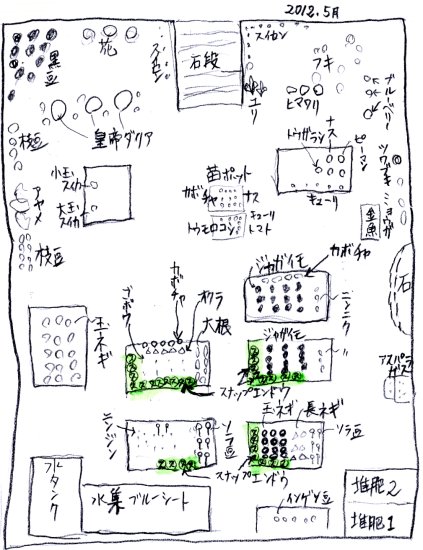 2012.5月
黒豆
花
スイカン
石段
スイカン
フキ
ブルーベリー
ユリ
ヒマワリ
ナス
トウガラシ
ピーマン
ツワブキ
ミョウガ
枝豆
皇帝ダリア
キューリ
小玉スイカ
大玉スイカ
苗ポット
カボチャ
ナス
キューリ
トウモロコシ
トマト
金魚
アヤメ
枝豆
ジャガイモ
カボチャ
石
ニンニク
ゴボウ
カボチャ
オクラ
大根
玉ネギ
ジャガイモ
〃
アスパラガス
スナップエンドウ
玉ネギ
長ネギ
ニンジン
ソラ豆
ソラ豆
スナップエンドウ
水タンク
水集ブルーシート
インゲン豆
堆肥2
堆肥1